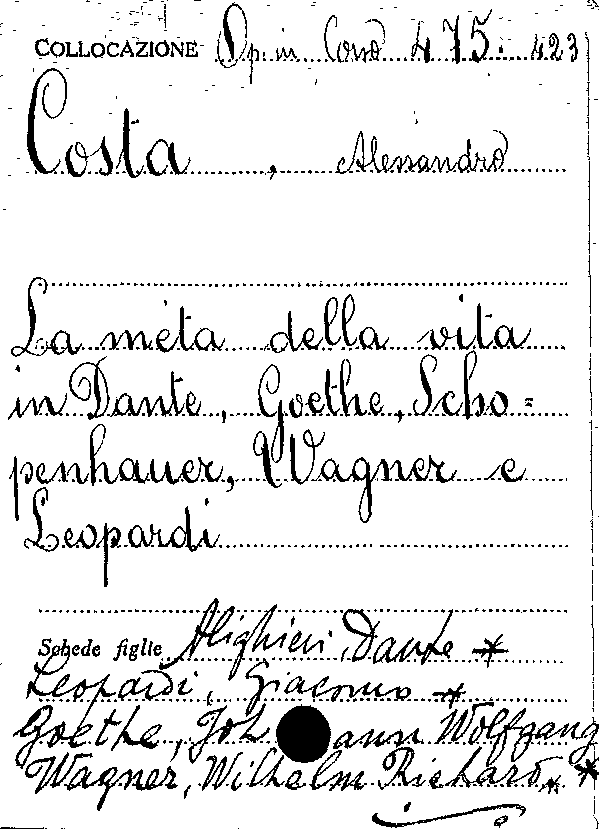 COLLOCAZIONE Op. in Corso 475. 423
Costa, Alessandro
La mèta della vita
in Dante, Goethe, Scho=
penhauer, Wagner e
Leopardi
Schede figlie Alighieri, Dante *
Leopardi, Giacomo *
Goethe, Johann Wolfgang
Wagner, Wilhelm Richard *